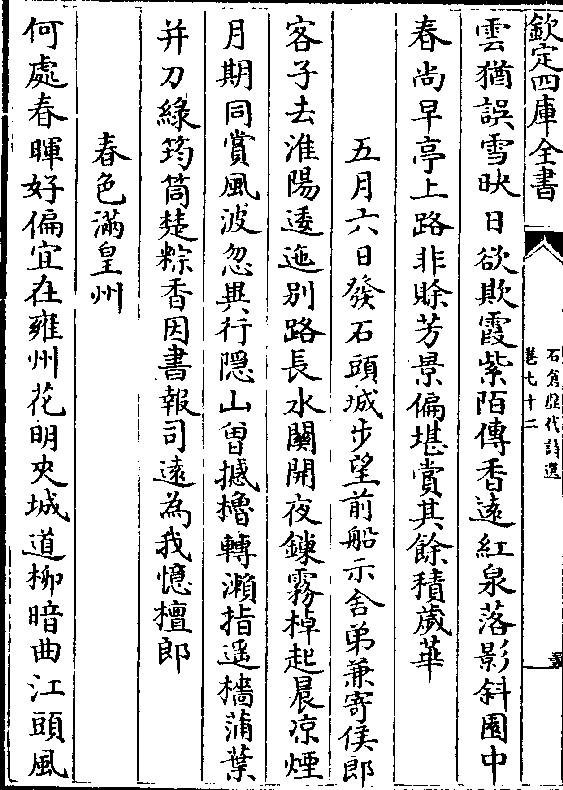 欽定四庫全書
石倉歷代詩選
卷七十二
雲猶誤雪映日欲欺霞紫陌傳香遠紅泉落影斜園中
春尚早亭上路非賒芳景偏堪賞其餘積歲華
五月六日發石頭城步望前船示舍弟兼寄侯郎
客子去淮陽逶迤別路長水關開夜鏁霧棹起晨凉煙
月期同賞風波忽異行隠山曾撼櫓轉瀬指遥檣蒲葉
并刀綠筠筒楚粽香因書報司遠為我憶檀郎
春色滿皇州
何處春暉好偏宜在雍州花明夾城道柳暗曲江頭風